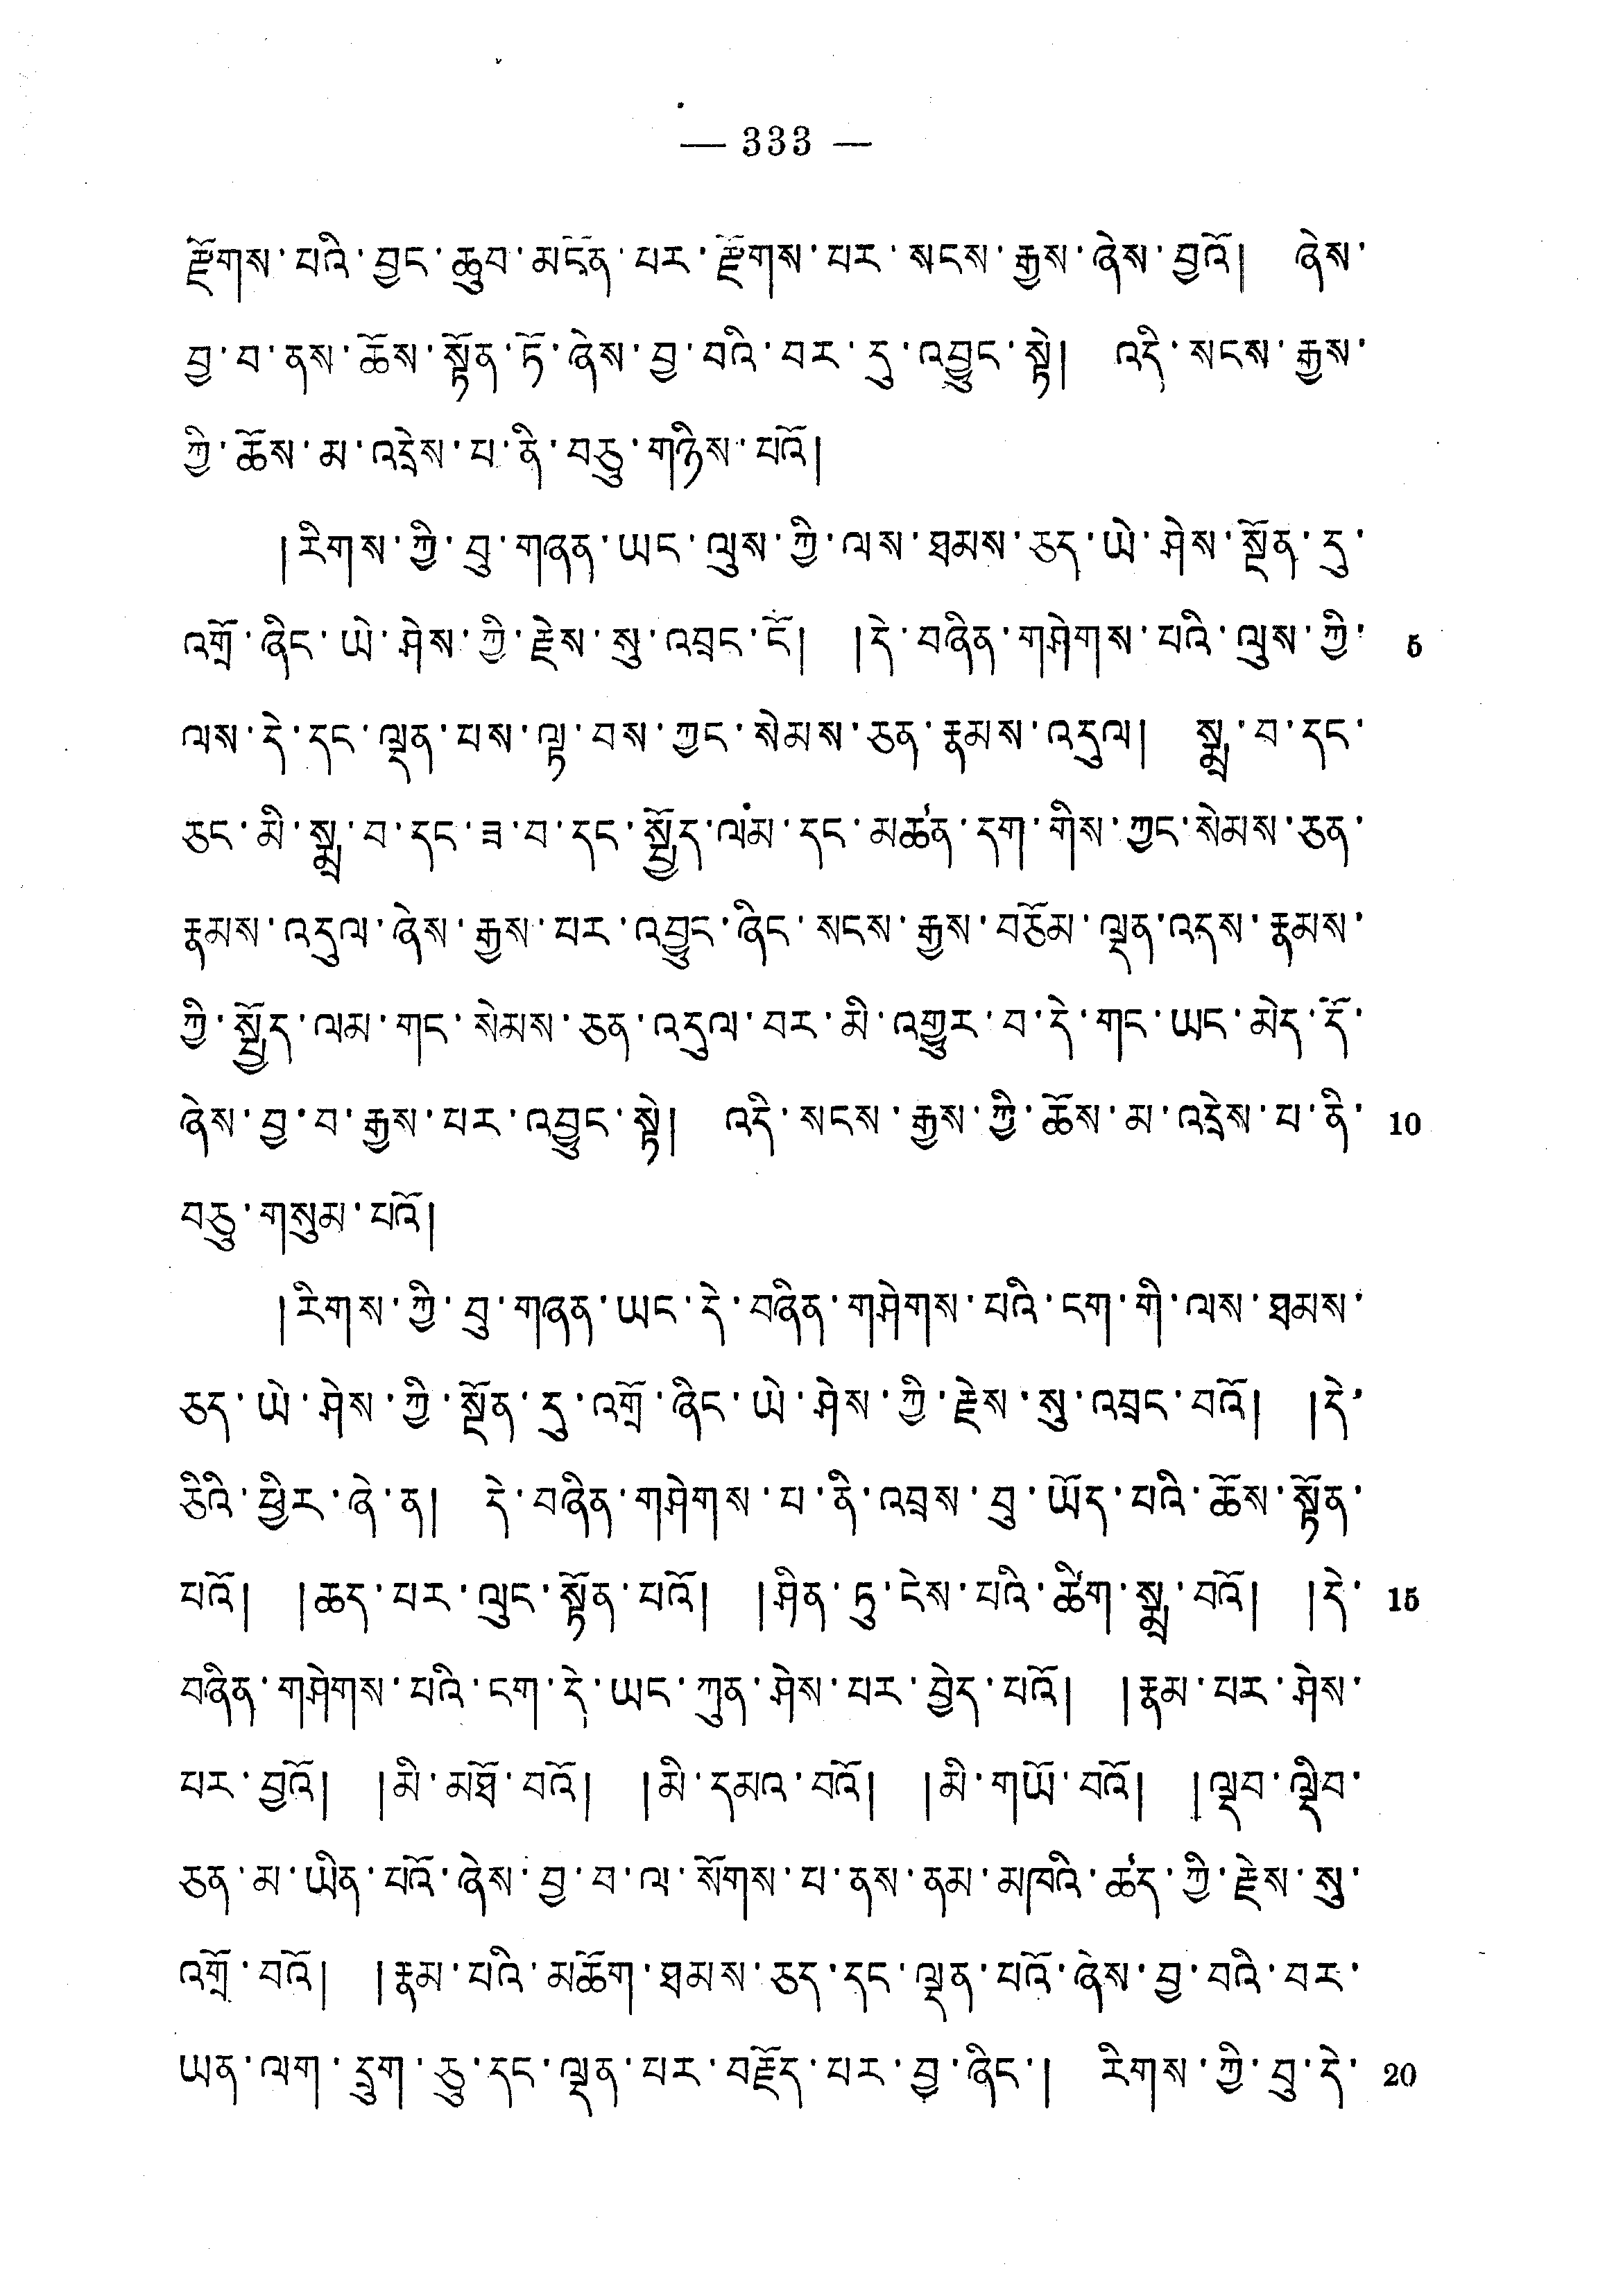 — 333 —
རྫོགས་པའི་བྱང་ཆུབ་མངོན་པར་རྫོགས་པར་སངས་རྒྱས་ཞེས་བྱའོ། ཞེས་
བྱ་བ་ནས་ཆོས་སྟོན་ཏོ་ཞེས་བྱ་བའི་བར་དུ་འབྱུང་སྟེ། འདི་སངས་རྒྱས་
ཀྱི་ཆོས་མ་འདྲེས་པ་ནི་བཅུ་གཉིས་པའོ།
།རིགས་ཀྱི་བུ་གཞན་ཡང་ལུས་ཀྱི་ལས་ཐམས་ཅད་ཡེ་ཤེས་སྔོན་དུ་
འགྲོ་ཞིང་ཡེ་ཤེས་ཀྱི་རྗེས་སུ་འབྲང་ངོ། །དེ་བཞིན་གཤེགས་པའི་ལུས་ཀྱི་ 5
ལས་དེ་དང་ལྡན་པས་ལྟ་བས་ཀྱང་སེམས་ཅན་རྣམས་འདུལ། སྨྲ་བ་དང་
ཅང་མི་སྨྲ་བ་དང་ཟ་བ་དང་སྤྱོད་ལམ་དང་མཚན་དག་གིས་ཀྱང་སེམས་ཅན་
རྣམས་འདུལ་ཞེས་རྒྱས་པར་འབྱུང་ཞིང་སངས་རྒྱས་བཅོམ་ལྡན་འདས་རྣམས་
ཀྱི་སྤྱོད་ལམ་གང་སེམས་ཅན་འདུལ་བར་མི་འགྱུར་བ་དེ་གང་ཡང་མེད་དོ་
ཞེས་བྱ་བ་རྒྱས་པར་འབྱུང་སྟེ། འདི་སངས་རྒྱས་ཀྱི་ཆོས་མ་འདྲེས་པ་ནི་ 10
བཅུ་གསུམ་པའོ།
།རིགས་ཀྱི་བུ་གཞན་ཡང་དེ་བཞིན་གཤེགས་པའི་ངག་གི་ལས་ཐམས་
ཅད་ཡེ་ཤེས་ཀྱི་སྔོན་དུ་འགྲོ་ཞིང་ཡེ་ཤེས་ཀྱི་རྗེས་སུ་འབྲང་བའོ། །དེ་
ཅིའི་ཕྱིར་ཞེ་ན། དེ་བཞིན་གཤེགས་པ་ནི་འབྲས་བུ་ཡོད་པའི་ཆོས་སྟོན་
པའོ། །ཆད་པར་ལུང་སྟོན་པའོ། །ཤིན་ཏུ་ངེས་པའི་ཚིག་སྨྲ་བའོ། །དེ་ 15
བཞིན་གཤེགས་པའི་ངག་དེ་ཡང་ཀུན་ཤེས་པར་བྱེད་པའོ། །རྣམ་པར་ཤེས་
པར་བྱའོ། །མི་མཐོ་བའོ། །མི་དམའ་བའོ། །མི་གཡོ་བའོ། །ལྡབ་ལྡིབ་
ཅན་མ་ཡིན་པའོ་ཞེས་བྱ་བ་ལ་སོགས་པ་ནས་ནམ་མཁའི་ཚད་ཀྱི་རྗེས་སུ་
འགྲོ་བའོ། །རྣམ་པའི་མཆོག་ཐམས་ཅད་དང་ལྡན་པའོ་ཞེས་བྱ་བའི་བར་
ཡན་ལག་དྲུག་ཅུ་དང་ལྡན་པར་བརྗོད་པར་བྱ་ཞིང་། རིགས་ཀྱི་བུ་དེ་ 20